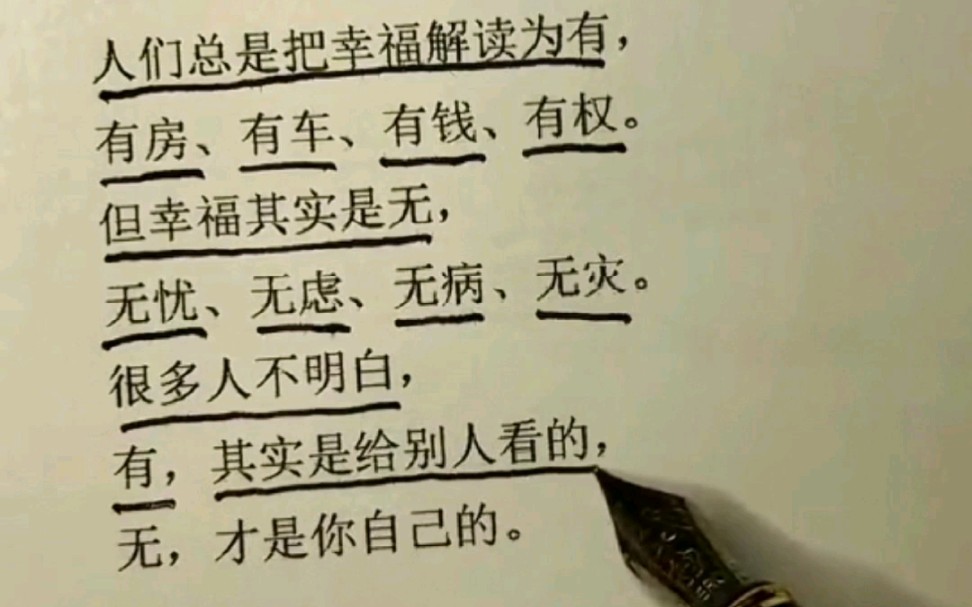 人们总是把幸福解读为有，
有房、有车、有钱、有权。
但幸福其实是无，
无忧、无虑、无病、无灾。
很多人不明白，
有，其实是给别人看的，
无，才是你自己的。